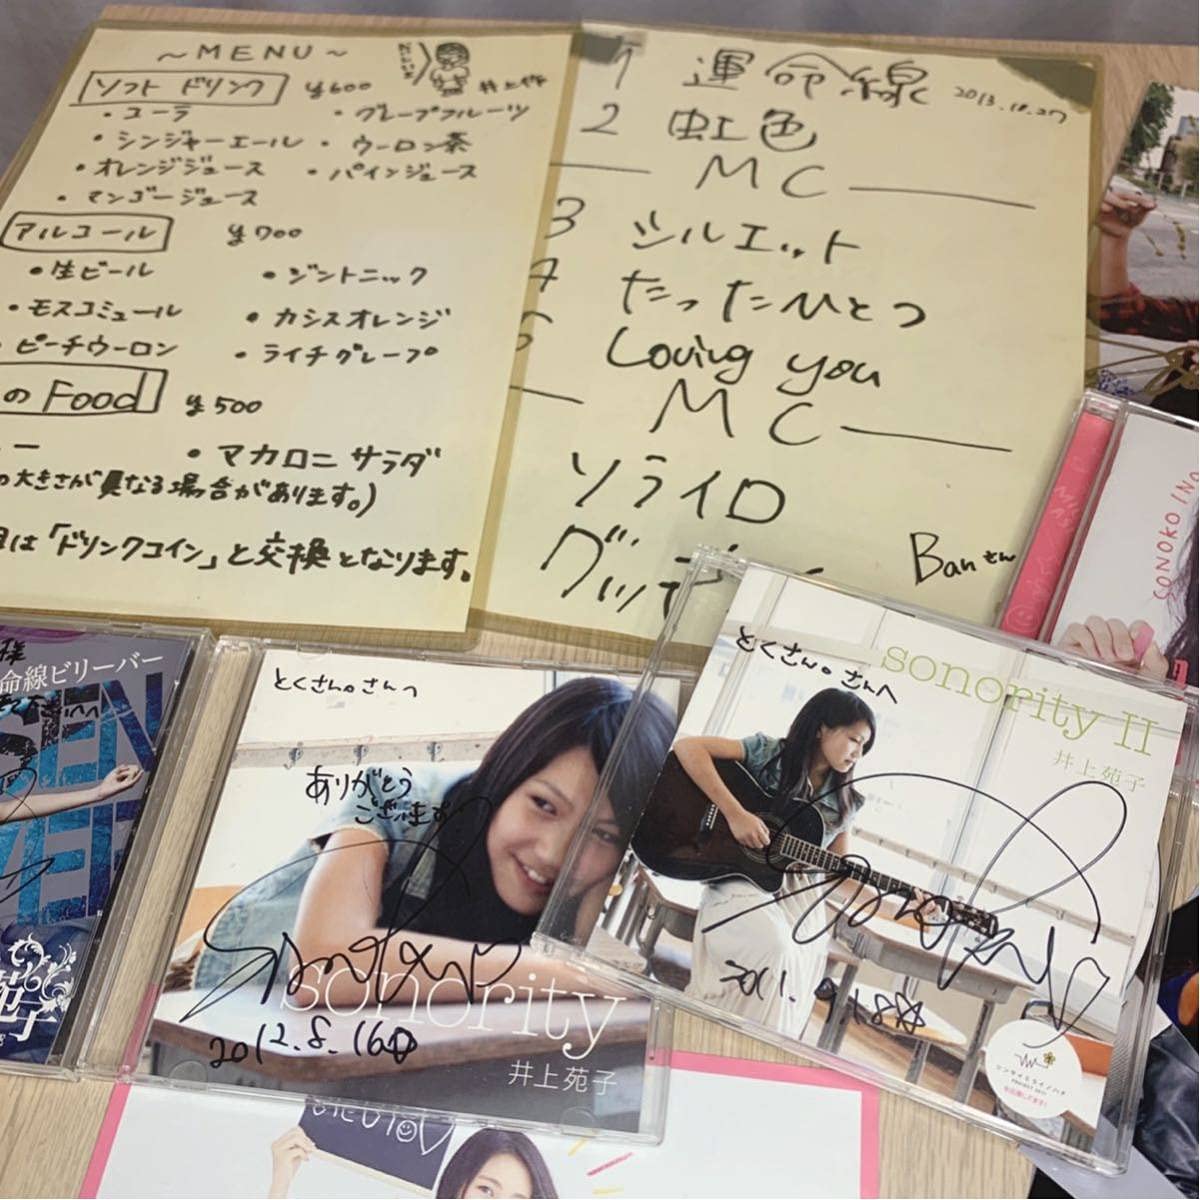 ~MENU~
ソフトドリンク ¥600
・コーラ ・グレープフルーツ
・ジンジャーエール ・ウーロン茶
・オレンジジュース ・パインジュース
・マンゴージュース
アルコール ¥700
・生ビール ・ジントニック
・モスコミュール ・カシスオレンジ
・ピーチウーロン ・ライチグレープ
のFood ¥500
ー ・マカロニサラダ
の大きさが異なる場合があります。)
は「ドリンクコイン」と交換となります。
1 運命線 2013.10.27
2 虹色
MC
3 シルエット
4 たったひとつ
5 Loving you
MC
ソライロ
グッデ
Banさん
SONOKO IN
様
命線ビリーバー
とくさん。さんへ
ありがとう
ございます
sonority
2012.8.16
井上苑子
とくさん。さんへ
sonority II
井上苑子
2011.9.18